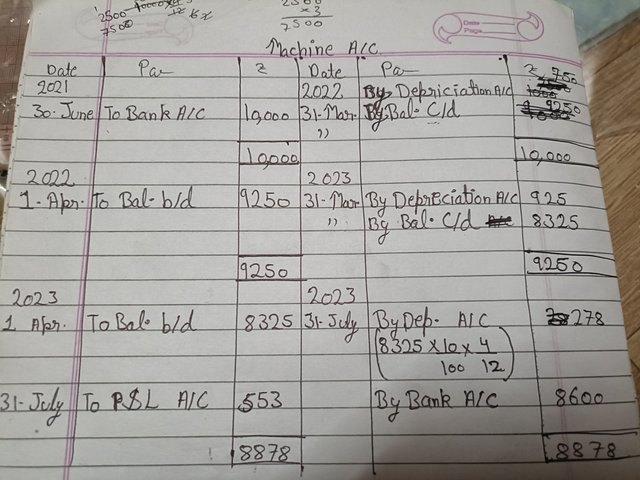 2500
7500
2500
×3
7500
Date
Page
Machine A/C.
Date Pa- ₹ Date Pa- ₹
2021 2022 By Depriciation A/C 750
30. June To Bank A/C 10,000 31-Mar- By Bal. C/d 9250
,,
10,000 10,000
2022 2023
1-Apr. To Bal. b/d 9250 31-Mar By Depreciation A/C 925
,, By Bal. C/d 8325
9250 9250
2023 2023
1 Apr. To Bal. b/d 8325 31-July By Dep. A/C 278
(8325 × 10 × 4
100 12)
31-July To P&L A/C 553 By Bank A/C 8600
8878 8878